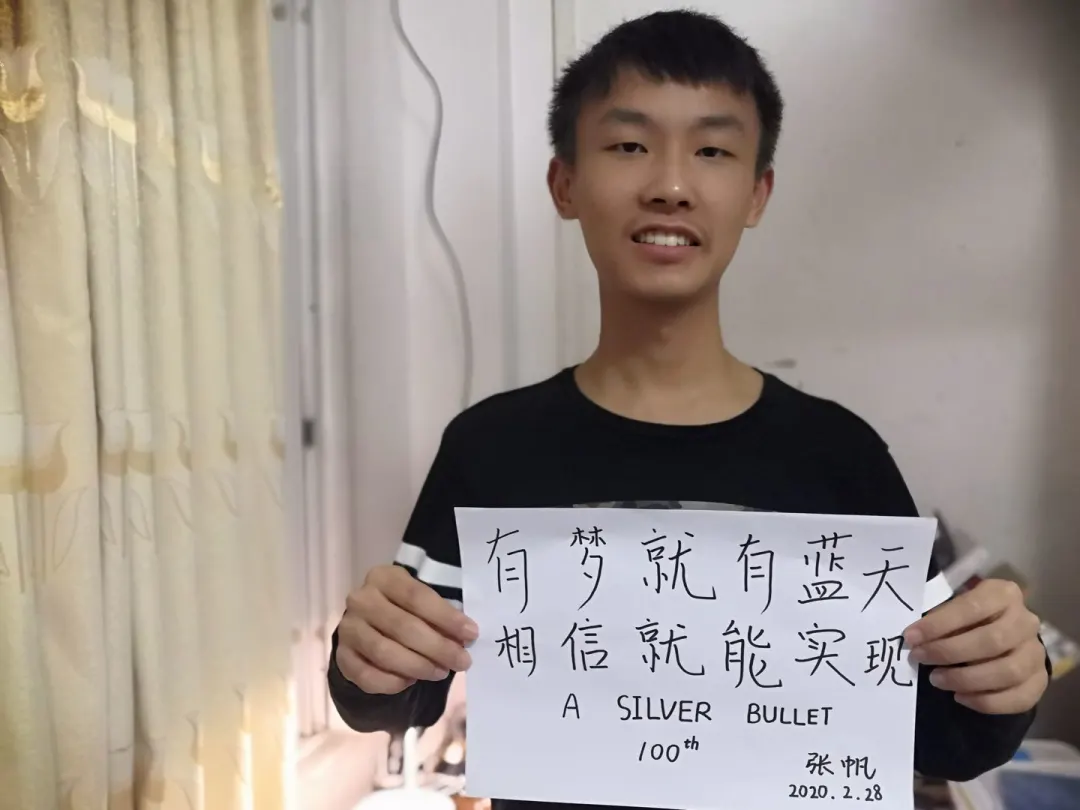 有梦就有蓝天
相信就能实现
A SILVER BULLET
100th
张帆
2020.2.28